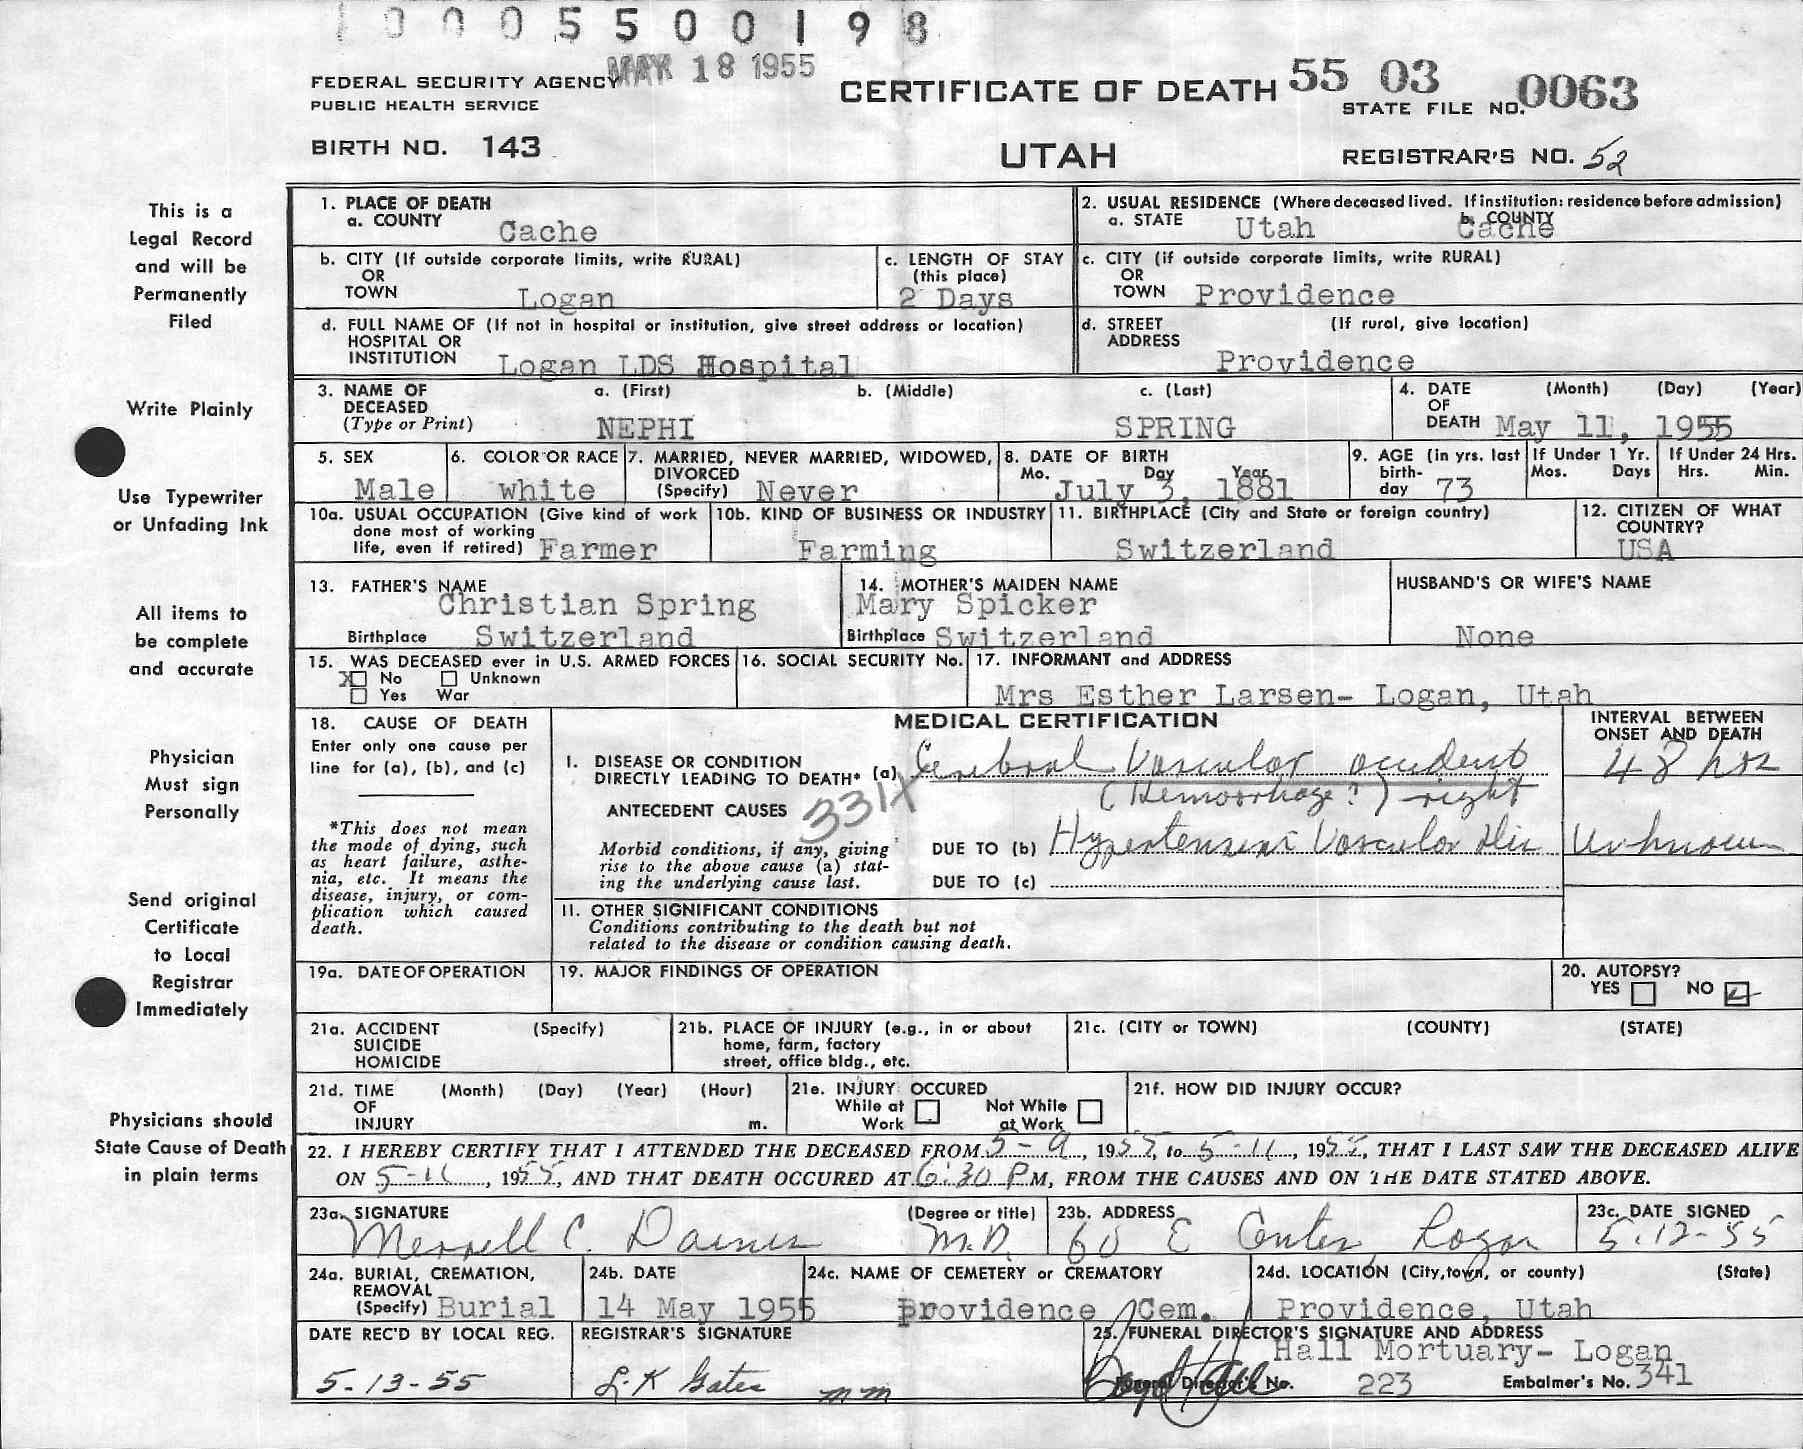 1 0 0 0 5 5 0 0 1 9 8
MAY 18 1955
FEDERAL SECURITY AGENCY
PUBLIC HEALTH SERVICE
CERTIFICATE OF DEATH
55 03 0063
STATE FILE NO.
BIRTH NO. 143
UTAH
REGISTRAR'S NO. 52
This is a
Legal Record
and will be
Permanently
Filed
Write Plainly
Use Typewriter
or Unfading Ink
All items to
be complete
and accurate
Physician
Must sign
Personally
Send original
Certificate
to Local
Registrar
Immediately
Physicians should
State Cause of Death
in plain terms
1. PLACE OF DEATH
a. COUNTY Cache
2. USUAL RESIDENCE (Where deceased lived. If institution: residence before admission)
a. STATE Utah b. COUNTY Cache
b. CITY (If outside corporate limits, write RURAL)
OR
TOWN Logan
c. LENGTH OF STAY
(this place)
2 Days
c. CITY (if outside corporate limits, write RURAL)
OR
TOWN Providence
d. FULL NAME OF (If not in hospital or institution, give street address or location)
HOSPITAL OR
INSTITUTION Logan LDS Hospital
d. STREET (If rural, give location)
ADDRESS
Providence
3. NAME OF a. (First) b. (Middle) c. (Last)
DECEASED
(Type or Print) NEPHI SPRING
4. DATE (Month) (Day) (Year)
OF
DEATH May 11, 1955
5. SEX
Male
6. COLOR OR RACE
white
7. MARRIED, NEVER MARRIED, WIDOWED,
DIVORCED
(Specify) Never
8. DATE OF BIRTH
Mo. Day Year
July 3, 1881
9. AGE (in yrs. last
birth-
day 73
If Under 1 Yr.
Mos. Days
If Under 24 Hrs.
Hrs. Min.
10a. USUAL OCCUPATION (Give kind of work
done most of working
life, even if retired) Farmer
10b. KIND OF BUSINESS OR INDUSTRY
Farming
11. BIRTHPLACE (City and State or foreign country)
Switzerland
12. CITIZEN OF WHAT
COUNTRY?
USA
13. FATHER'S NAME
Christian Spring
Birthplace Switzerland
14. MOTHER'S MAIDEN NAME
Mary Spicker
Birthplace Switzerland
HUSBAND'S OR WIFE'S NAME
None
15. WAS DECEASED ever in U.S. ARMED FORCES
X No Unknown
Yes War
16. SOCIAL SECURITY No.
17. INFORMANT and ADDRESS
Mrs Esther Larsen- Logan, Utah
18. CAUSE OF DEATH
Enter only one cause per
line for (a), (b), and (c)
*This does not mean
the mode of dying, such
as heart failure, asthe-
nia, etc. It means the
disease, injury, or com-
plication which caused
death.
MEDICAL CERTIFICATION
INTERVAL BETWEEN
ONSET AND DEATH
I. DISEASE OR CONDITION
DIRECTLY LEADING TO DEATH* (a) Cerebral Vascular accident 48 hrs
(Hemorrhage?) right
ANTECEDENT CAUSES 331X
Morbid conditions, if any, giving
rise to the above cause (a) stat-
ing the underlying cause last.
DUE TO (b) Hypertensive Vascular dis Unknown
DUE TO (c)
11. OTHER SIGNIFICANT CONDITIONS
Conditions contributing to the death but not
related to the disease or condition causing death.
19a. DATE OF OPERATION
19. MAJOR FINDINGS OF OPERATION
20. AUTOPSY?
YES NO
21a. ACCIDENT (Specify)
SUICIDE
HOMICIDE
21b. PLACE OF INJURY (e.g., in or about
home, farm, factory
street, office bldg., etc.
21c. (CITY or TOWN) (COUNTY) (STATE)
21d. TIME (Month) (Day) (Year) (Hour)
OF
INJURY m.
21e. INJURY OCCURED
While at Not While
Work at Work
21f. HOW DID INJURY OCCUR?
22. I HEREBY CERTIFY THAT I ATTENDED THE DECEASED FROM 5-9, 1955, to 5-11, 1955, THAT I LAST SAW THE DECEASED ALIVE
ON 5-11, 1955, AND THAT DEATH OCCURED AT 6:30 P M, FROM THE CAUSES AND ON THE DATE STATED ABOVE.
23a. SIGNATURE (Degree or title)
Merrell C. Daines M.D.
23b. ADDRESS
60 E Center, Logan
23c. DATE SIGNED
5-12-55
24a. BURIAL, CREMATION,
REMOVAL
(Specify) Burial
24b. DATE
14 May 1955
24c. NAME OF CEMETERY or CREMATORY
Providence Cem.
24d. LOCATION (City, town, or county) (State)
Providence, Utah
DATE REC'D BY LOCAL REG.
5-13-55
REGISTRAR'S SIGNATURE
L.K Gates mm
25. FUNERAL DIRECTOR'S SIGNATURE AND ADDRESS
Hall Mortuary- Logan
Funeral Director's No. 223 Embalmer's No. 341